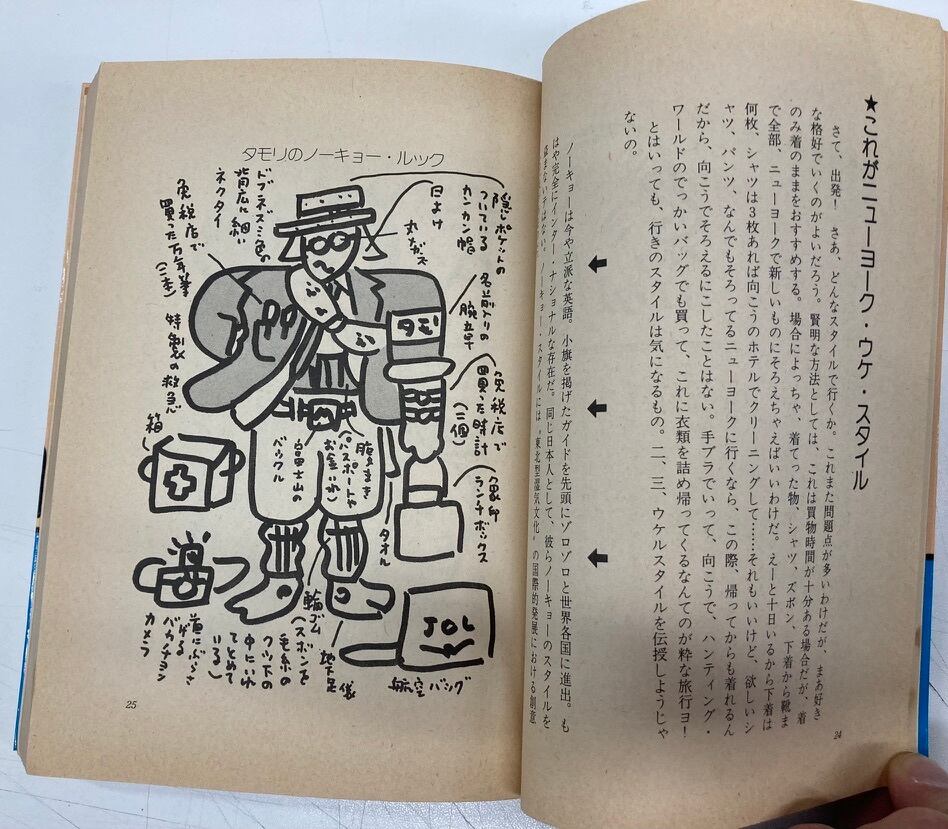 ★これがニューヨーク・ウケ・スタイル
さて、出発！　さあ、どんなスタイルで行くか。これまた問題点が多いわけだが、まあ好き
な格好でいくのがよいだろう。賢明な方法としては、これは買物時間が十分ある場合だが、着
のみ着のままをおすすめする。場合によっちゃ、着てった物、シャツ、ズボン、下着から靴ま
で全部、ニューヨークで新しいものにそろえちゃえばいいわけだ。えーと十日いるから下着は
何枚、シャツは3枚あれば向こうのホテルでクリーニングして……それもいいけど、欲しいシ
ャツ、パンツ、なんでもそろってるニューヨークに行くなら、この際、帰ってからも着れるん
だから、向こうでそろえるにこしたことはない。手ブラでいって、向こうで、ハンティング・
ワールドのでっかいバッグでも買って、これに衣類を詰め帰ってくるなんてのが粋な旅行ヨ！
とはいっても、行きのスタイルは気になるもの。二、三、ウケルスタイルを伝授しようじゃ
ないの。
ノーキョーは今や立派な英語。小旗を掲げたガイドを先頭にゾロゾロと世界各国に進出。も
はや完全にインター・ナショナルな存在だ。同じ日本人として、彼らノーキョーのスタイルを
ノーキョー・スタイルには、“東北型湿気文化”の国際的発展における創意
24
タモリのノーキョー・ルック
隠しポケットの
ついている
カンカン帽
日よけ
丸メガネ
名前入りの
腕章
免税店で
買った時計
(二個)
象印
ランチボックス
ドブネズミ色の
背広に細い
ネクタイ
免税店で
買った万年筆
(二本)
特製の救急
箱
タモリ
腹まき
(パスポートや
お金いれ)
富士山の
バックル
タオル
輪ゴム
(ズボンを
毛糸の
クツ下の
中にいれ
てとめて
いる)
地下足袋
首にぶらさ
げる
バカチョン
カメラ
JOL
航空バッグ
25